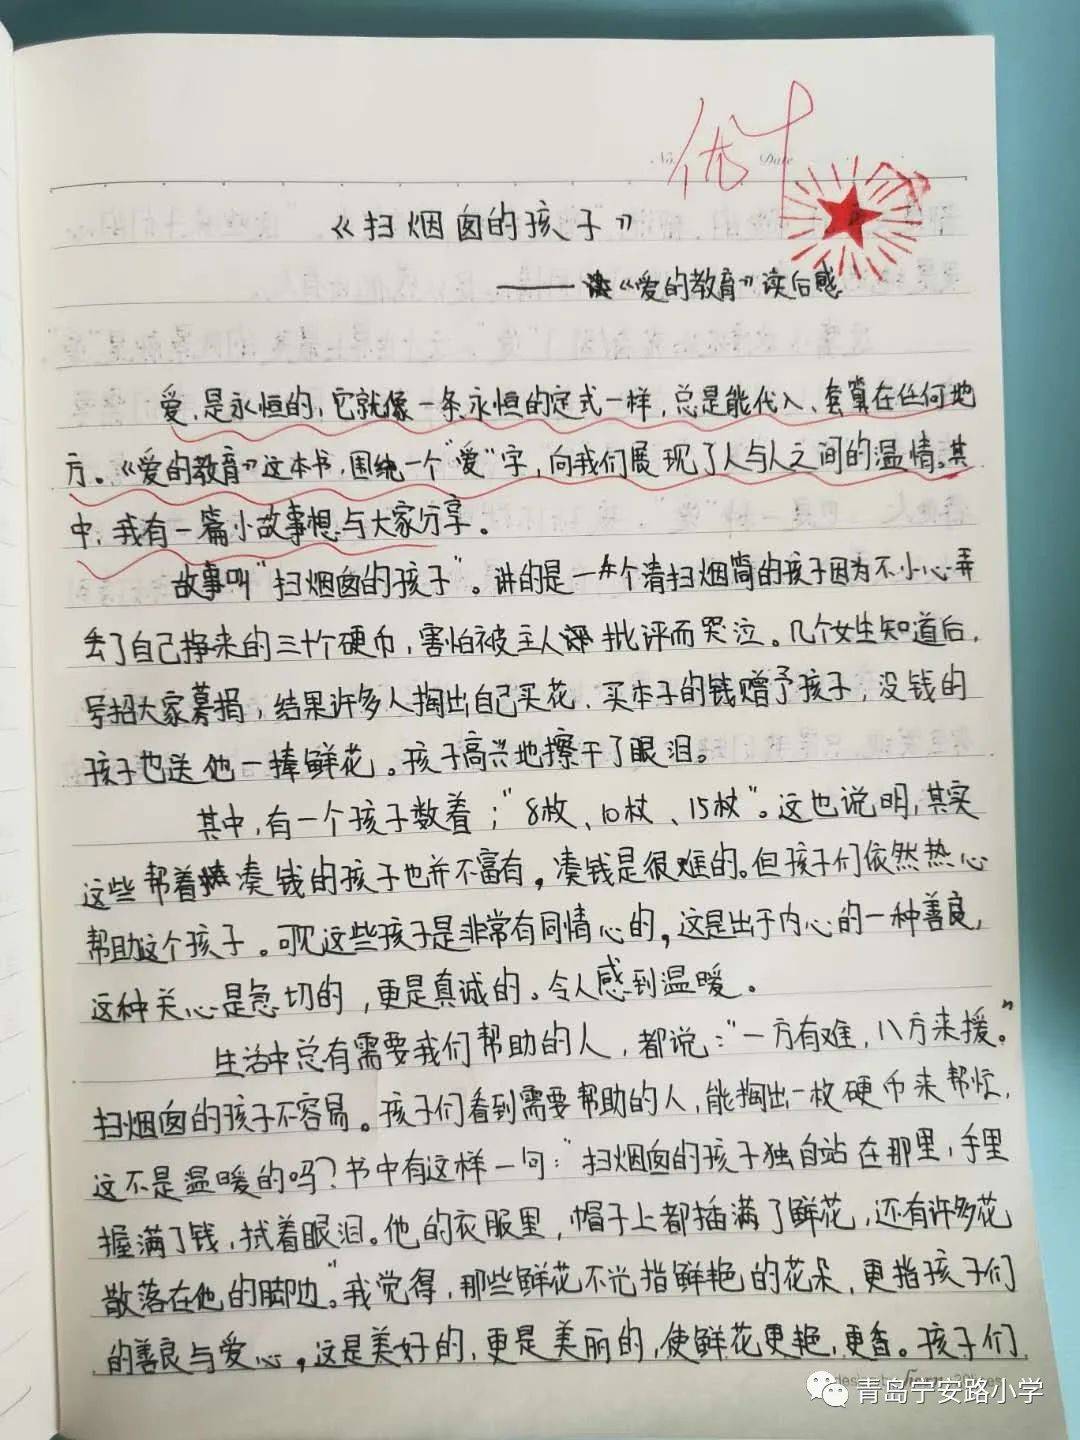 优+
No.
Date
《扫烟囱的孩子》
——《爱的教育》读后感
爱,是永恒的,它就像一条永恒的定式一样,总是能代入、套算在任何地
方。《爱的教育》这本书,围绕一个“爱”字,向我们展现了人与人之间的温情。其
中,我有一篇小故事想与大家分享。
故事叫“扫烟囱的孩子”。讲的是一个清扫烟筒的孩子因为不小心弄
丢了自己挣来的三十个硬币,害怕被主人批评而哭泣。几个女生知道后,
号招大家募捐,结果许多人掏出自己买花、买本子的钱赠予孩子,没钱的
孩子也送他一捧鲜花。孩子高兴地擦干了眼泪。
其中,有一个孩子数着;“8枚、10杖、15杖”。这也说明,其实
这些帮着凑钱的孩子也并不富有,凑钱是很难的。但孩子们依然热心
帮助这个孩子。可见这些孩子是非常有同情心的,这是出于内心的一种善良,
这种关心是急切的,更是真诚的。令人感到温暖。
生活中总有需要我们帮助的人,都说:“一方有难,八方来援。”
扫烟囱的孩子不容易。孩子们看到需要帮助的人,能掏出一枚硬币来帮忙,
这不是温暖的吗?书中有这样一句:“扫烟囱的孩子独自站在那里,手里
握满了钱,拭着眼泪。他的衣服里,帽子上都插满了鲜花,还有许多花
散落在他的脚边。”我觉得,那些鲜花不光指鲜艳的花朵,更指孩子们
的善良与爱心,这是美好的,更是美丽的,使鲜花更艳,更香。孩子们
青岛宁安路小学